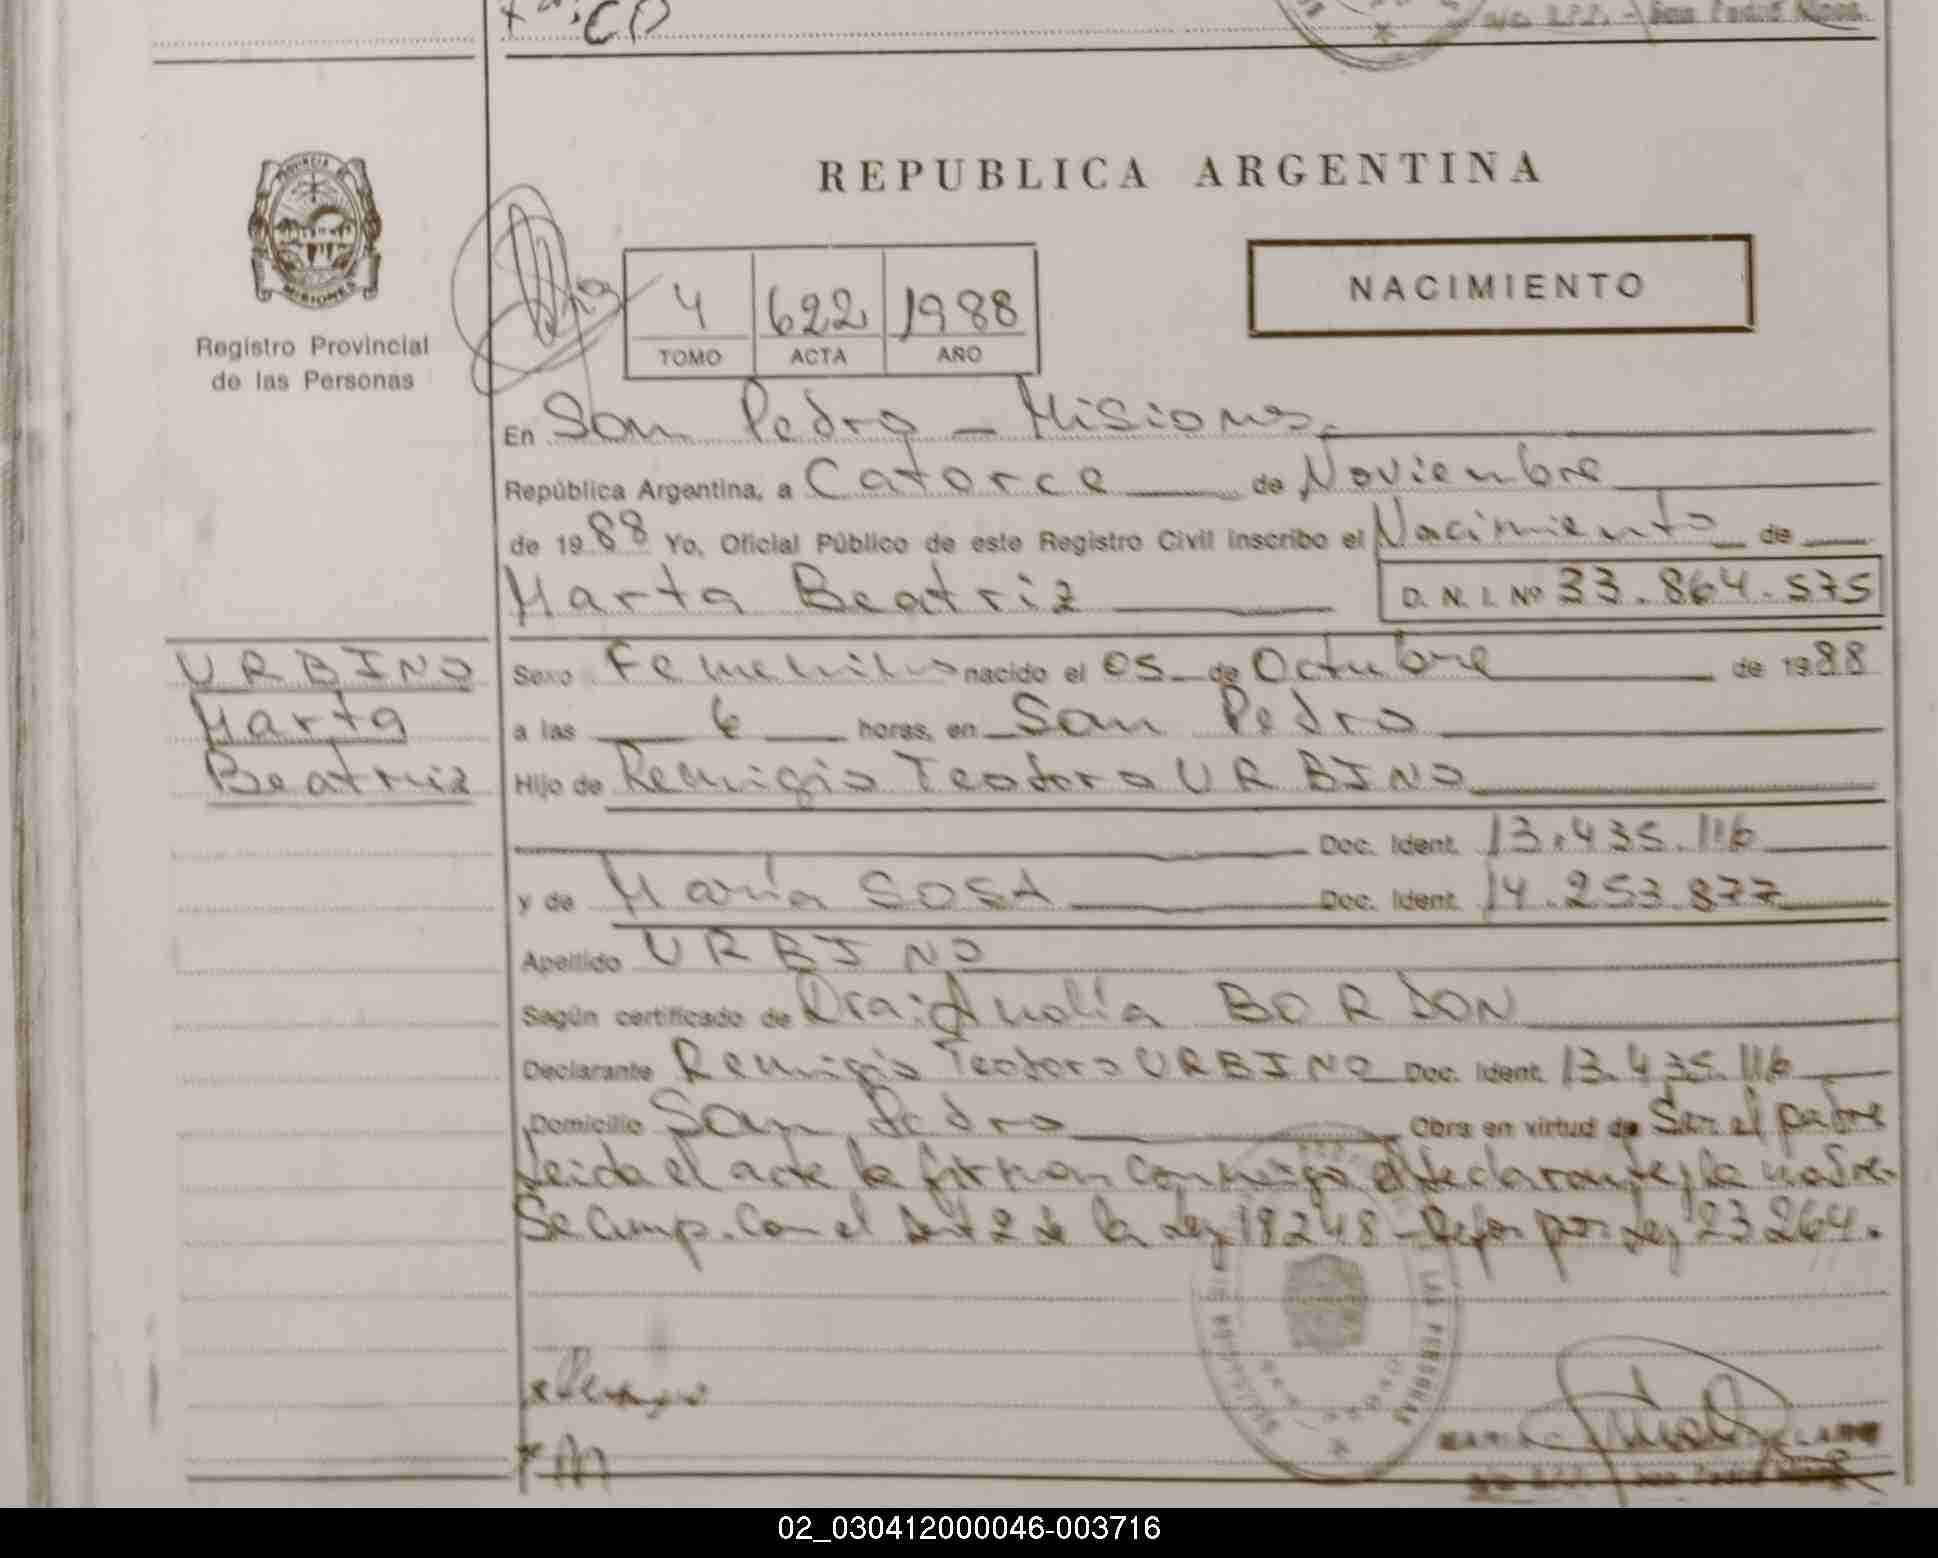 REPUBLICA ARGENTINA
PROVINCIA DE
MISIONES
Registro Provincial
de las Personas
4 622 1988
TOMO ACTA AÑO
NACIMIENTO
En San Pedro - Misiones.
República Argentina, a Catorce de Noviembre
de 1988 Yo, Oficial Público de este Registro Civil inscribo el Nacimiento de
Marta Beatriz D. N. I. Nº 33.864.575
URBINO
Marta
Beatriz
Sexo Femenino nacido el 05 de Octubre de 1988
a las 6 horas, en San Pedro
Hijo de Remigio Teodoro URBINO
Doc. Ident. 13.435.116
y de María SOSA Doc. Ident. 14.253.877
Apellido URBINO
Según certificado de Dra: Analía BORDON
Declarante Remigio Teodoro URBINO Doc. Ident. 13.435.116
Domicilio San Pedro Obra en virtud de Ser el padre
Leida el acta la firman conmigo el declarante y la madre.
Se cump. con el Art 2 de la Ley 18248 - Refor por Ley 23264.
LAS PERSONAS
02_030412000046-003716